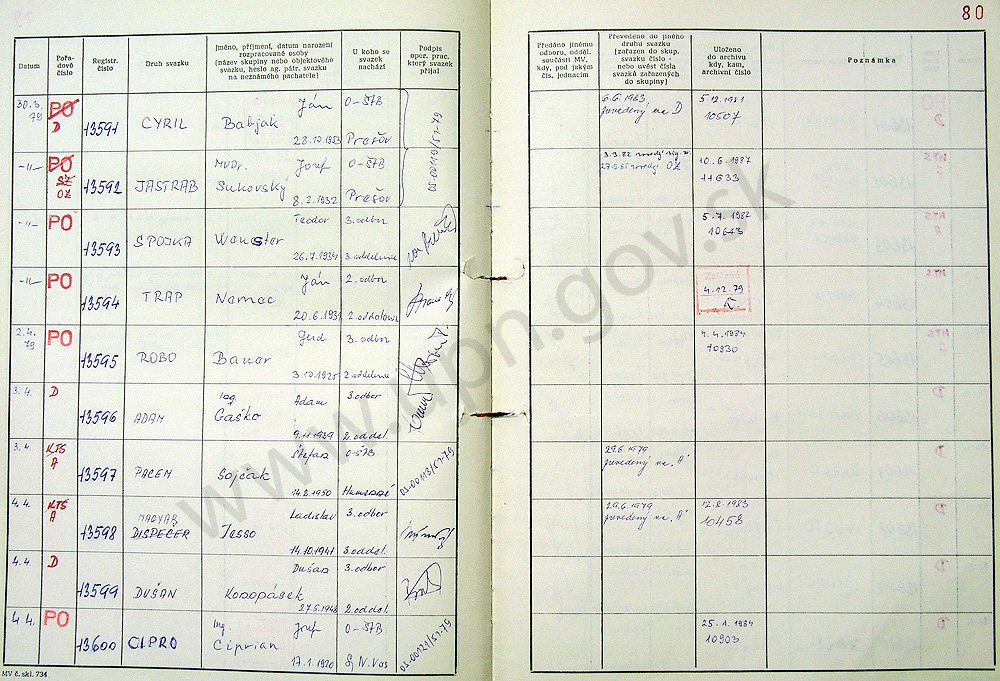 80
Datum
Pořa-
dové
číslo
Registr.
číslo
Druh svazku
Jméno, příjmení, datum narození
rozpracované osoby
(název skupiny nebo objektového
svazku, heslo ag. pátr. svazku
na neznámého pachatele)
U koho se
svazek
nachází
Podpis
oper. prac.
který svazek
přijal
Předáno jinému
odboru, odděl.
součásti MV,
kdy, pod jakým
čís. jednacím
Převedeno do jiného
druhu svazku
(zařazen do skup.
svazku číslo -
nebo uvést čísla
svazků zařazených
do skupiny)
Uloženo
do archivu
kdy, kam,
archivní číslo
Poznámka
30.3. 79 PO D 13591 CYRIL Ján Babjak 23.10.1953 O-ŠTB Prešov
6.6.1983 prevedený na D 5.12.1981 10507
-11- PO OZ 13592 JASTRAB MVDr. Jozef Sukovský 8.2.1932 O-ŠTB Prešov
OS-00110/ST-79
OZ 10.6.1987 11633
-11- PO 13593 SPOJKA Teodor 26.7.1934 3.odbor 3.oddelenie
5.7.1982 10643
-11- PO 13594 TRAP Ján Nemec 20.6.1931 2.odbor
Zničené 4.12.79
2.4. 79 PO 13595 ROBO Gerd Bauer 3.10.1925 3.odbor 2.oddelenie
4.4.1984 10930
3.4. D 13596 ADAM Ing. Adam Gaško 9.11.1939 3.odbor 2.oddel.
3.4. KTS A 13597 PACEM Štefan Sojčák 14.2.1950 O-ŠTB Humenné OS-00113/ST-79
29.6.1979 prevedený na "A"
4.4. KTS A 13598 MAGYAR DISPEČER Ladislav Jesso 14.10.1941 3.odbor 3.oddel.
29.6.1979 prevedený na "A" 12.8.1983 10458
4.4. D 13599 DUŠAN Dušan Konopásek 27.5.1948 3.odbor 2.oddel.
4.4. PO 13600 CIPRO Ing. Jozef Ciprian 17.1.1920 O-ŠTB Sp. N. Ves OS-00121/ST-79
25.1.1984 10903
MV č. skl. 734
www.upn.gov.sk